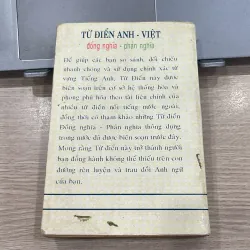 TỪ ĐIỂN ANH - VIỆT
đồng nghĩa - phản nghĩa
Để giúp các bạn so sánh, đối chiếu
nhanh chóng và sử dụng chính xác từ
vựng Tiếng Anh, Từ Điển này được
biên soạn trên cơ sở hệ thống hóa và
phong phú hóa theo tài liệu chính của
nhiều từ điển nổi tiếng nước ngoài,
đồng thời có tham khảo những Từ Điển
Đồng Nghĩa - Phản Nghĩa thông dụng
trong nước đã được biên soạn trước đây.
Mong rằng Từ điển này trở thành người
bạn đồng hành không thể thiếu trên con
đường rèn luyện và trau dồi Anh ngữ
của bạn.